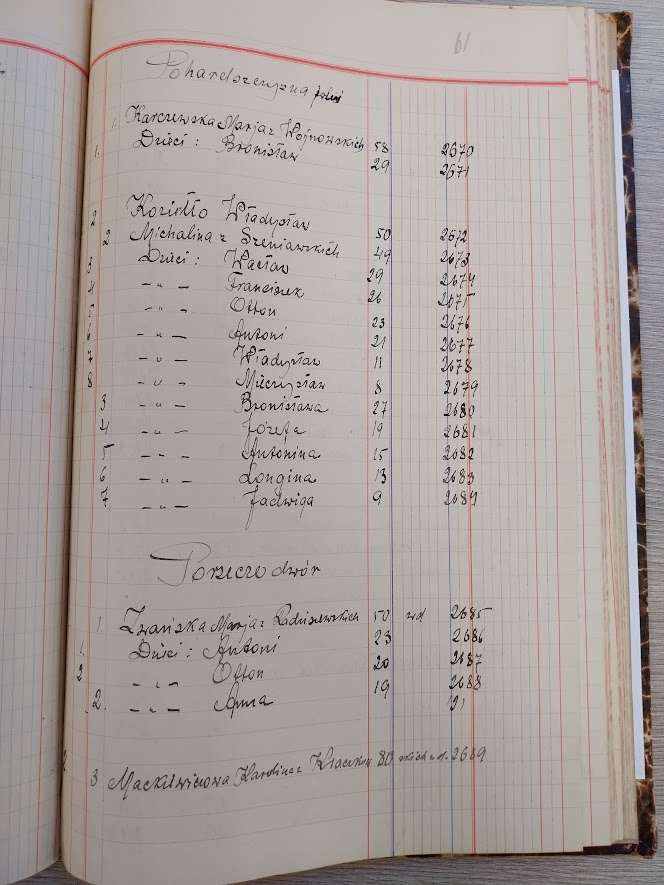 61
Pohardszczyzna
1. Karczewska Marja z Wojnowskich 58 2670
1. Dzieci: Bronisław 29 2671
2 Koziełło Władysław 50 2672
2 Michalina z Szeniawskich 49 2673
3 Dzieci: Wacław 29 2674
4 -"- Franciszek 26 2675
5 -"- Otton 23 2676
6 -"- Antoni 21 2677
7 -"- Władysław 11 2678
8 -"- Mieczysław 8 2679
3 -"- Bronisława 27 2680
4 -"- Józefa 19 2681
5 -"- Antonina 15 2682
6 -"- Longina 13 2683
7 -"- Jadwiga 9 2684
Porzecze dwór
1. Marja z 50 wd 2685
1. Dzieci: Antoni 23 2686
2. -"- Otton 20 2687
2. -"- Anna 19 2688
3 Mackiewiczowa Karolina z 80 2689